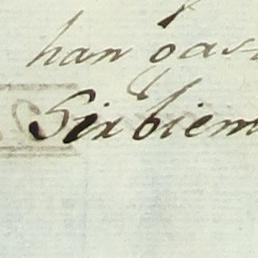 han gas
Sirbiem